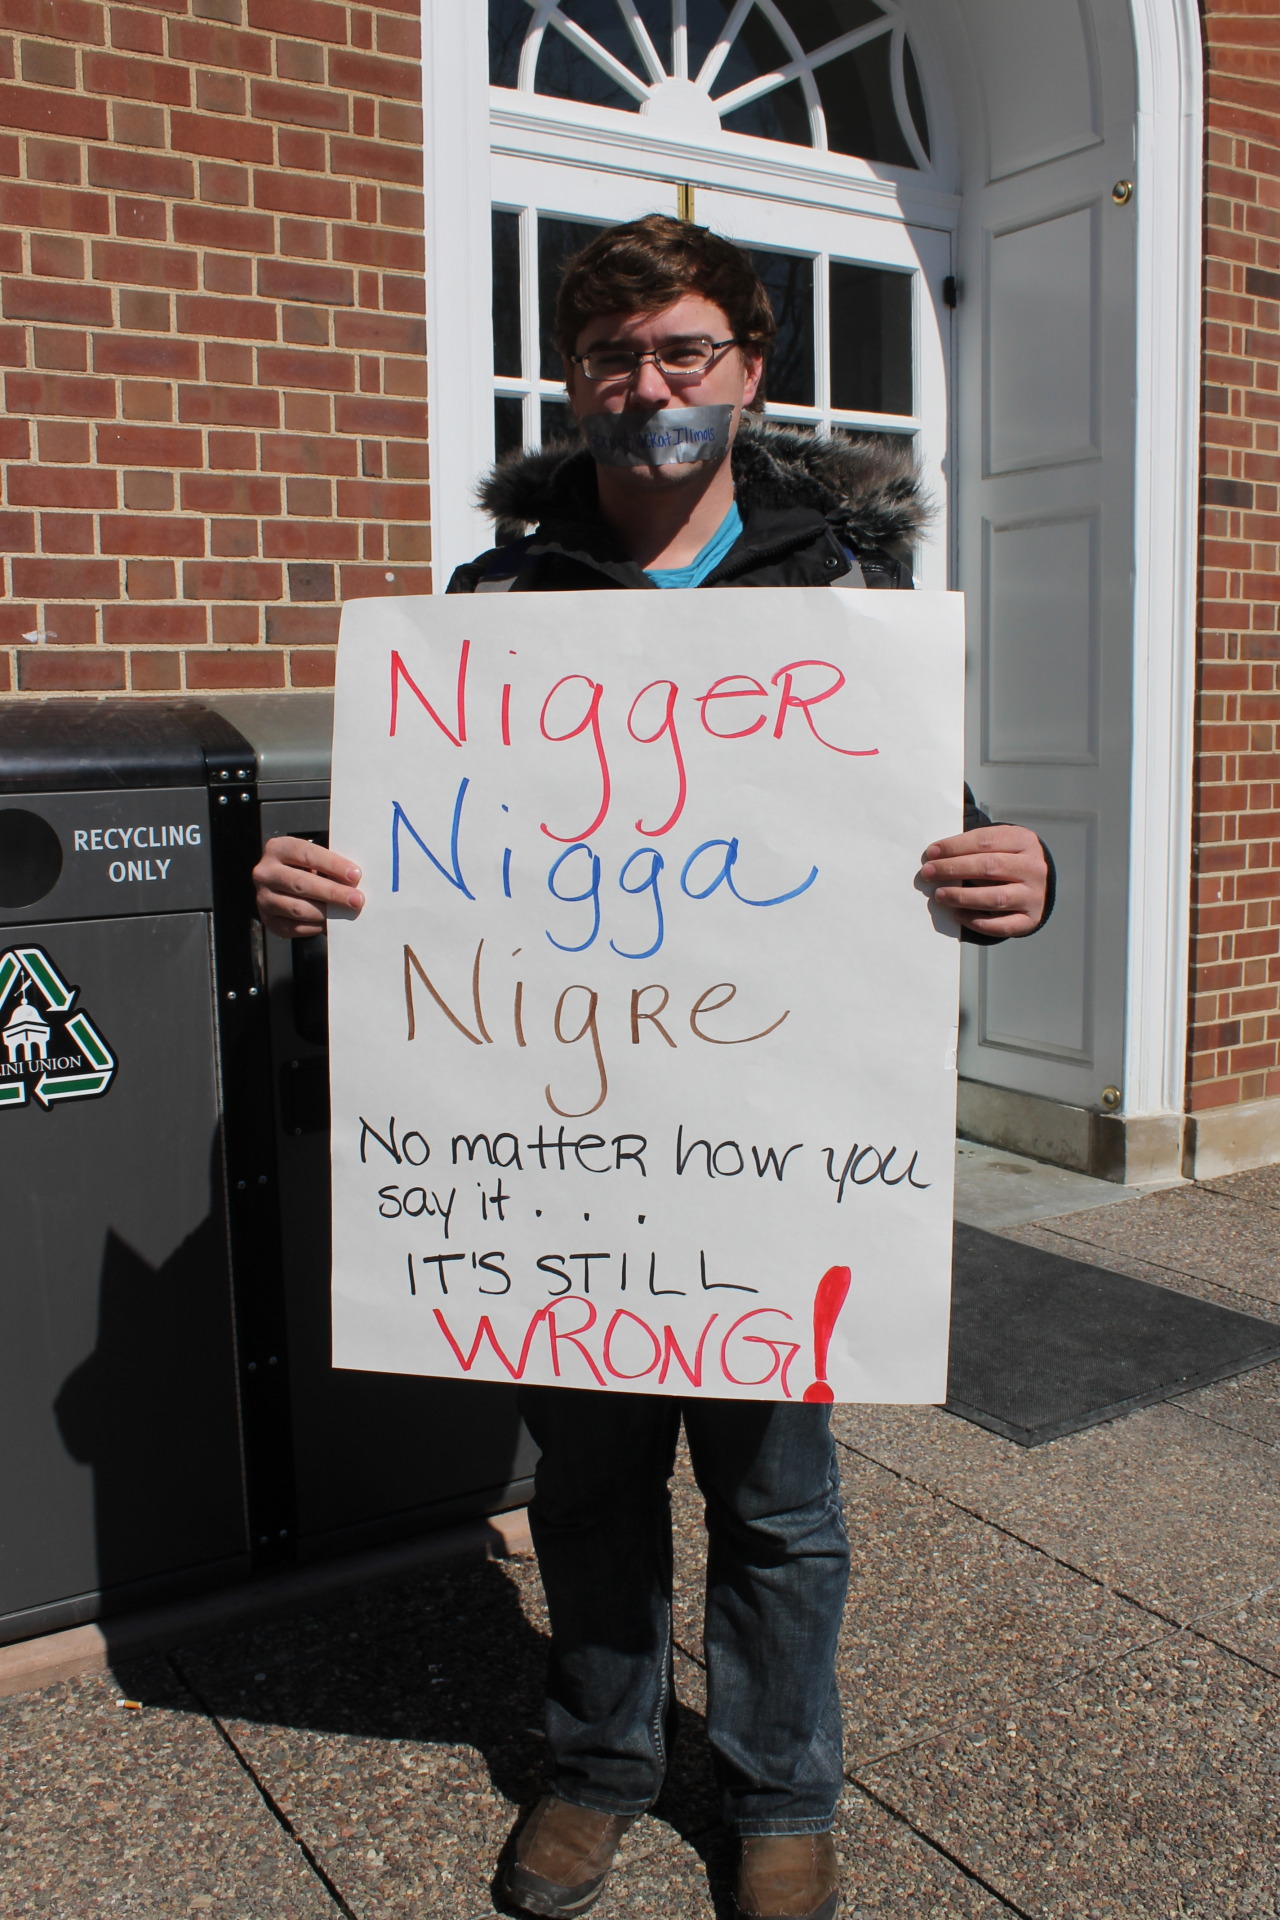 Nigger
Nigga
Nigre
No matter how you
say it . . .
IT'S STILL
WRONG!
RECYCLING
ONLY
INI UNION
at Illinois